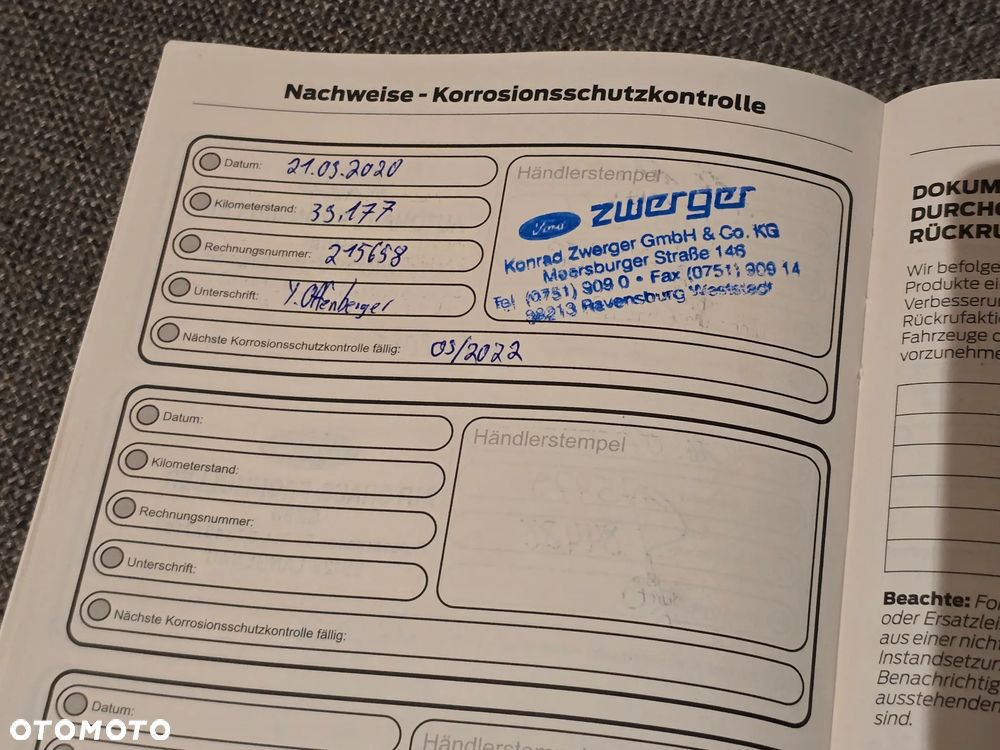 Nachweise - Korrosionsschutzkontrolle
Datum: 21.09.2020
Kilometerstand: 39.177
Rechnungsnummer: 215658
Unterschrift: Y. Offenberger
Nächste Korrosionsschutzkontrolle fällig: 09/2022
Händlerstempel
Ford zwerger
Konrad Zwerger GmbH & Co. KG
Meersburger Straße 146
Tel (0751) 909 0 • Fax (0751) 909 14
88213 Ravensburg Weststadt
Datum:
Kilometerstand:
Rechnungsnummer:
Unterschrift:
Nächste Korrosionsschutzkontrolle fällig:
Händlerstempel
Datum:
Händlerstempel
DOKUM
DURCHG
RÜCKRU
Wir befolge
Produkte ei
Verbesserun
Rückrufakti
Fahrzeuge d
vorzunehme
Beachte: For
oder Ersatzlei
aus einer nicht
Instandsetzun
Benachrichtig
ausstehenden
sind.
OTOMOTO